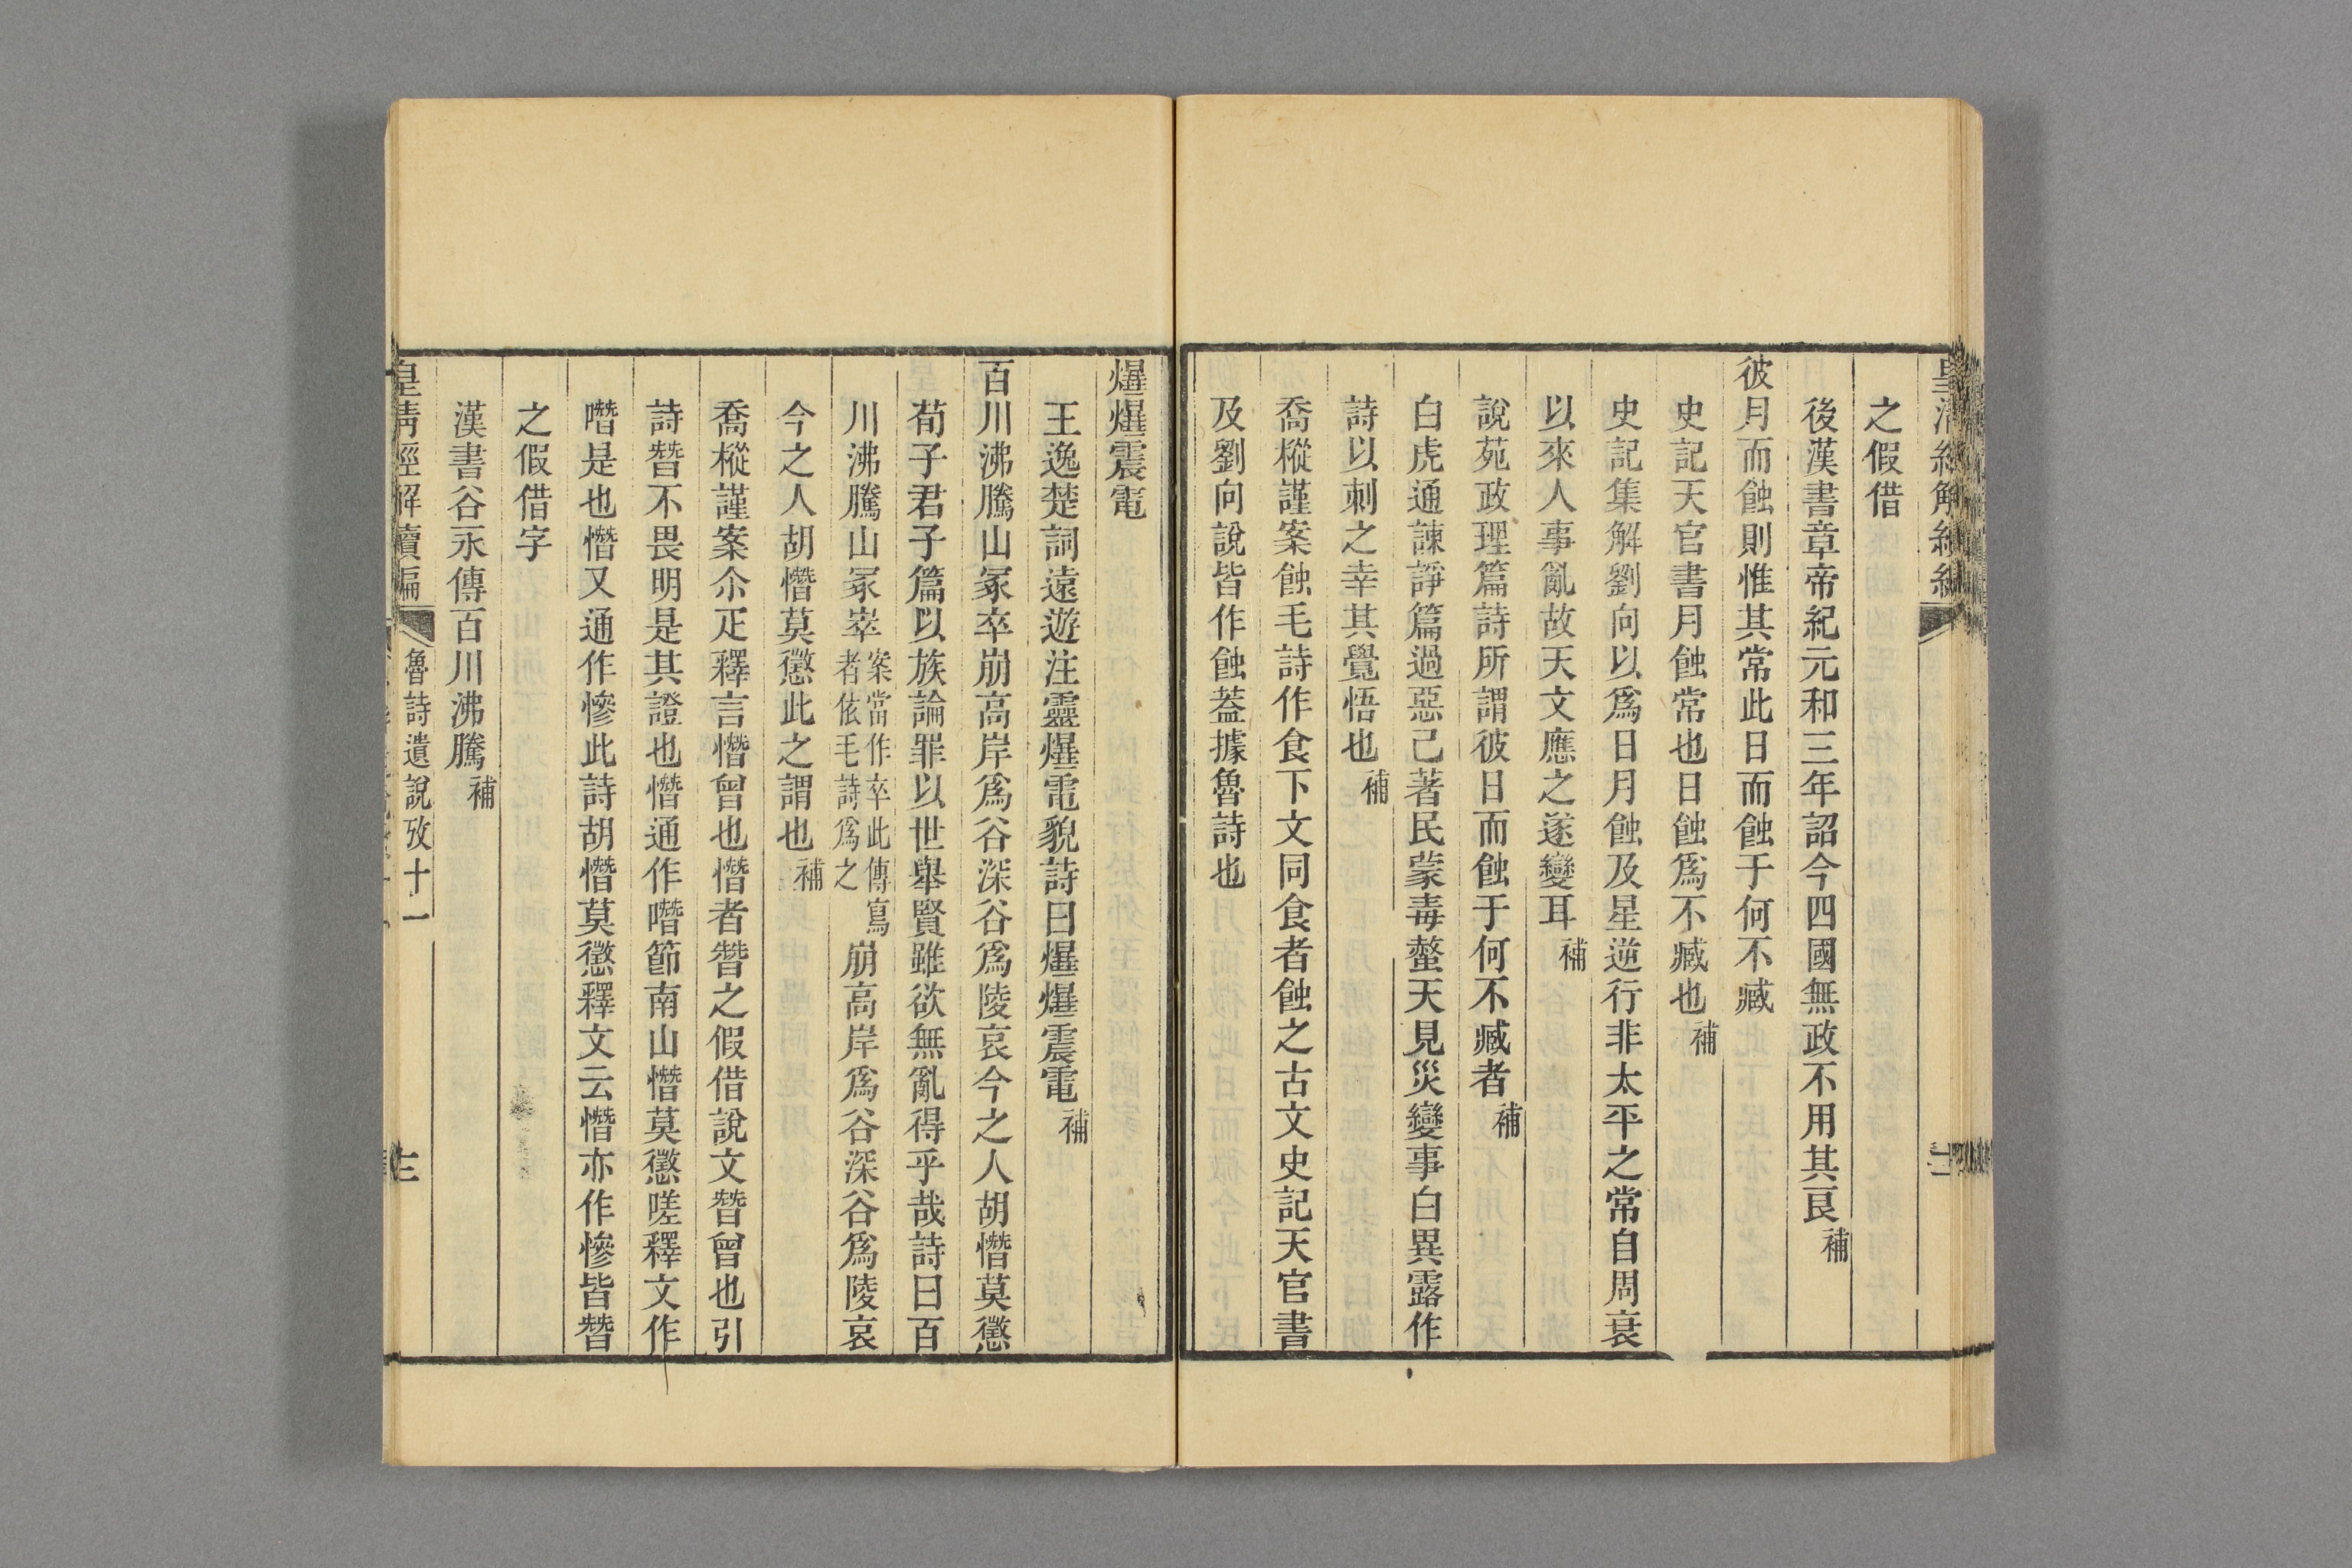 之假借
後漢書章帝紀元和三年詔今四國無政不用其良補
彼月而蝕則惟其常此日而蝕于何不臧
史記天官書月蝕常也日蝕爲不臧也補
史記集解劉向以爲日月蝕及星逆行非太平之常自周衰
以來人事亂故天文應之遂變耳補
說苑政理篇詩所謂彼日而蝕于何不臧者補
白虎通諫諍篇過惡己著民蒙毒螫天見災變事白異露作
詩以刺之幸其覺悟也補
喬樅謹案蝕毛詩作食下文同食者蝕之古文史記天官書
及劉向說皆作蝕蓋據魯詩也
爗爗震電
王逸楚詞遠遊注靈爗電貌詩曰爗爗震電補
百川沸騰山冢卒崩高岸爲谷深谷爲陵哀今之人胡憯莫懲
荀子君子篇以族論罪以世舉賢雖欲無亂得乎哉詩曰百
川沸騰山冢崒案當作卒此傳寫者依毛詩爲之崩高岸爲谷深谷爲陵哀
今之人胡憯莫懲此之謂也補
喬樅謹案尒疋釋言憯曾也憯者朁之假借說文朁曾也引
詩朁不畏明是其證也憯通作噆節南山憯莫懲嗟釋文作
噆是也憯又通作慘此詩胡憯莫懲釋文云憯亦作慘皆朁
之假借字
漢書谷永傳百川沸騰補
皇清經解續編
魯詩遺說攷十一